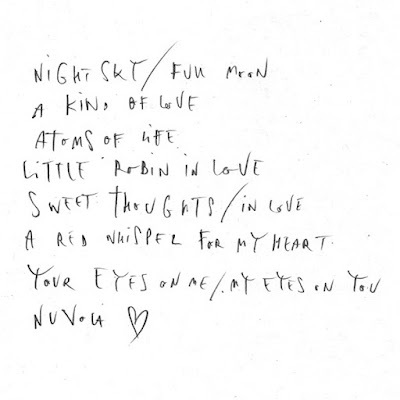 NIGHT SKY / FULL MOON
A KIND OF LOVE
ATOMS OF LIFE
LITTLE ROBIN IN LOVE
SWEET THOUGHTS / IN LOVE
A RED WHISPER FOR MY HEART.
YOUR EYES ON ME / MY EYES ON YOU
NUVOLA ♡